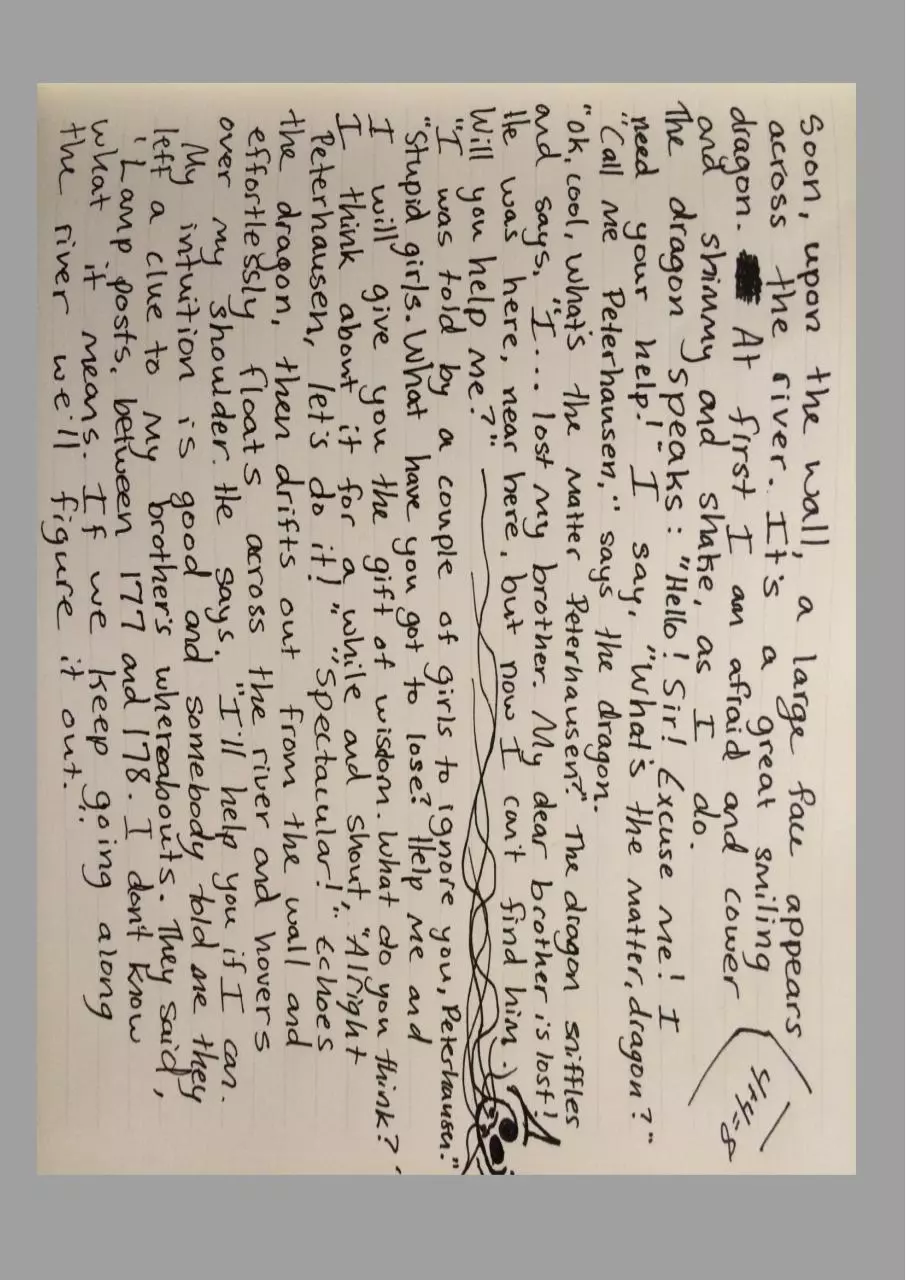 Soon, upon the wall, a large face appears
across the river. It's a great smiling
dragon. At first I am afraid and cower
and shimmy and shake, as I do.
The dragon speaks: "Hello! Sir! Excuse me! I
need your help!" I say, "What's the matter, dragon?"
"Call me Peterhausen," says the dragon.
"Ok, cool, what's the matter Peterhausen?" The dragon sniffles
and says, "I... lost my brother. My dear brother is lost!
He was here, near here, but now I can't find him.
Will you help me?"
"I was told by a couple of girls to ignore you, Peterhausen."
"Stupid girls. What have you got to lose? Help me and
I will give you the gift of wisdom. What do you think?"
I think about it for a while and shout, "Alright
Peterhausen, let's do it!" "Spectacular!" Echoes
the dragon, then drifts out from the wall and
effortlessly floats across the river and hovers
over my shoulder. He says, "I'll help you if I can.
My intuition is good and somebody told me they
left a clue to my brother's whereabouts. They said,
'Lamp posts, between 177 and 178.' I don't know
what it means. If we keep going along
the river we'll figure it out.